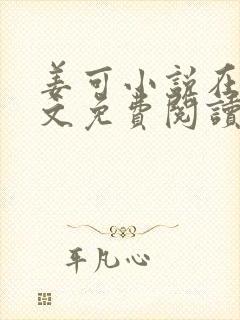 姜可小说在
文免費閱讀
平凡心